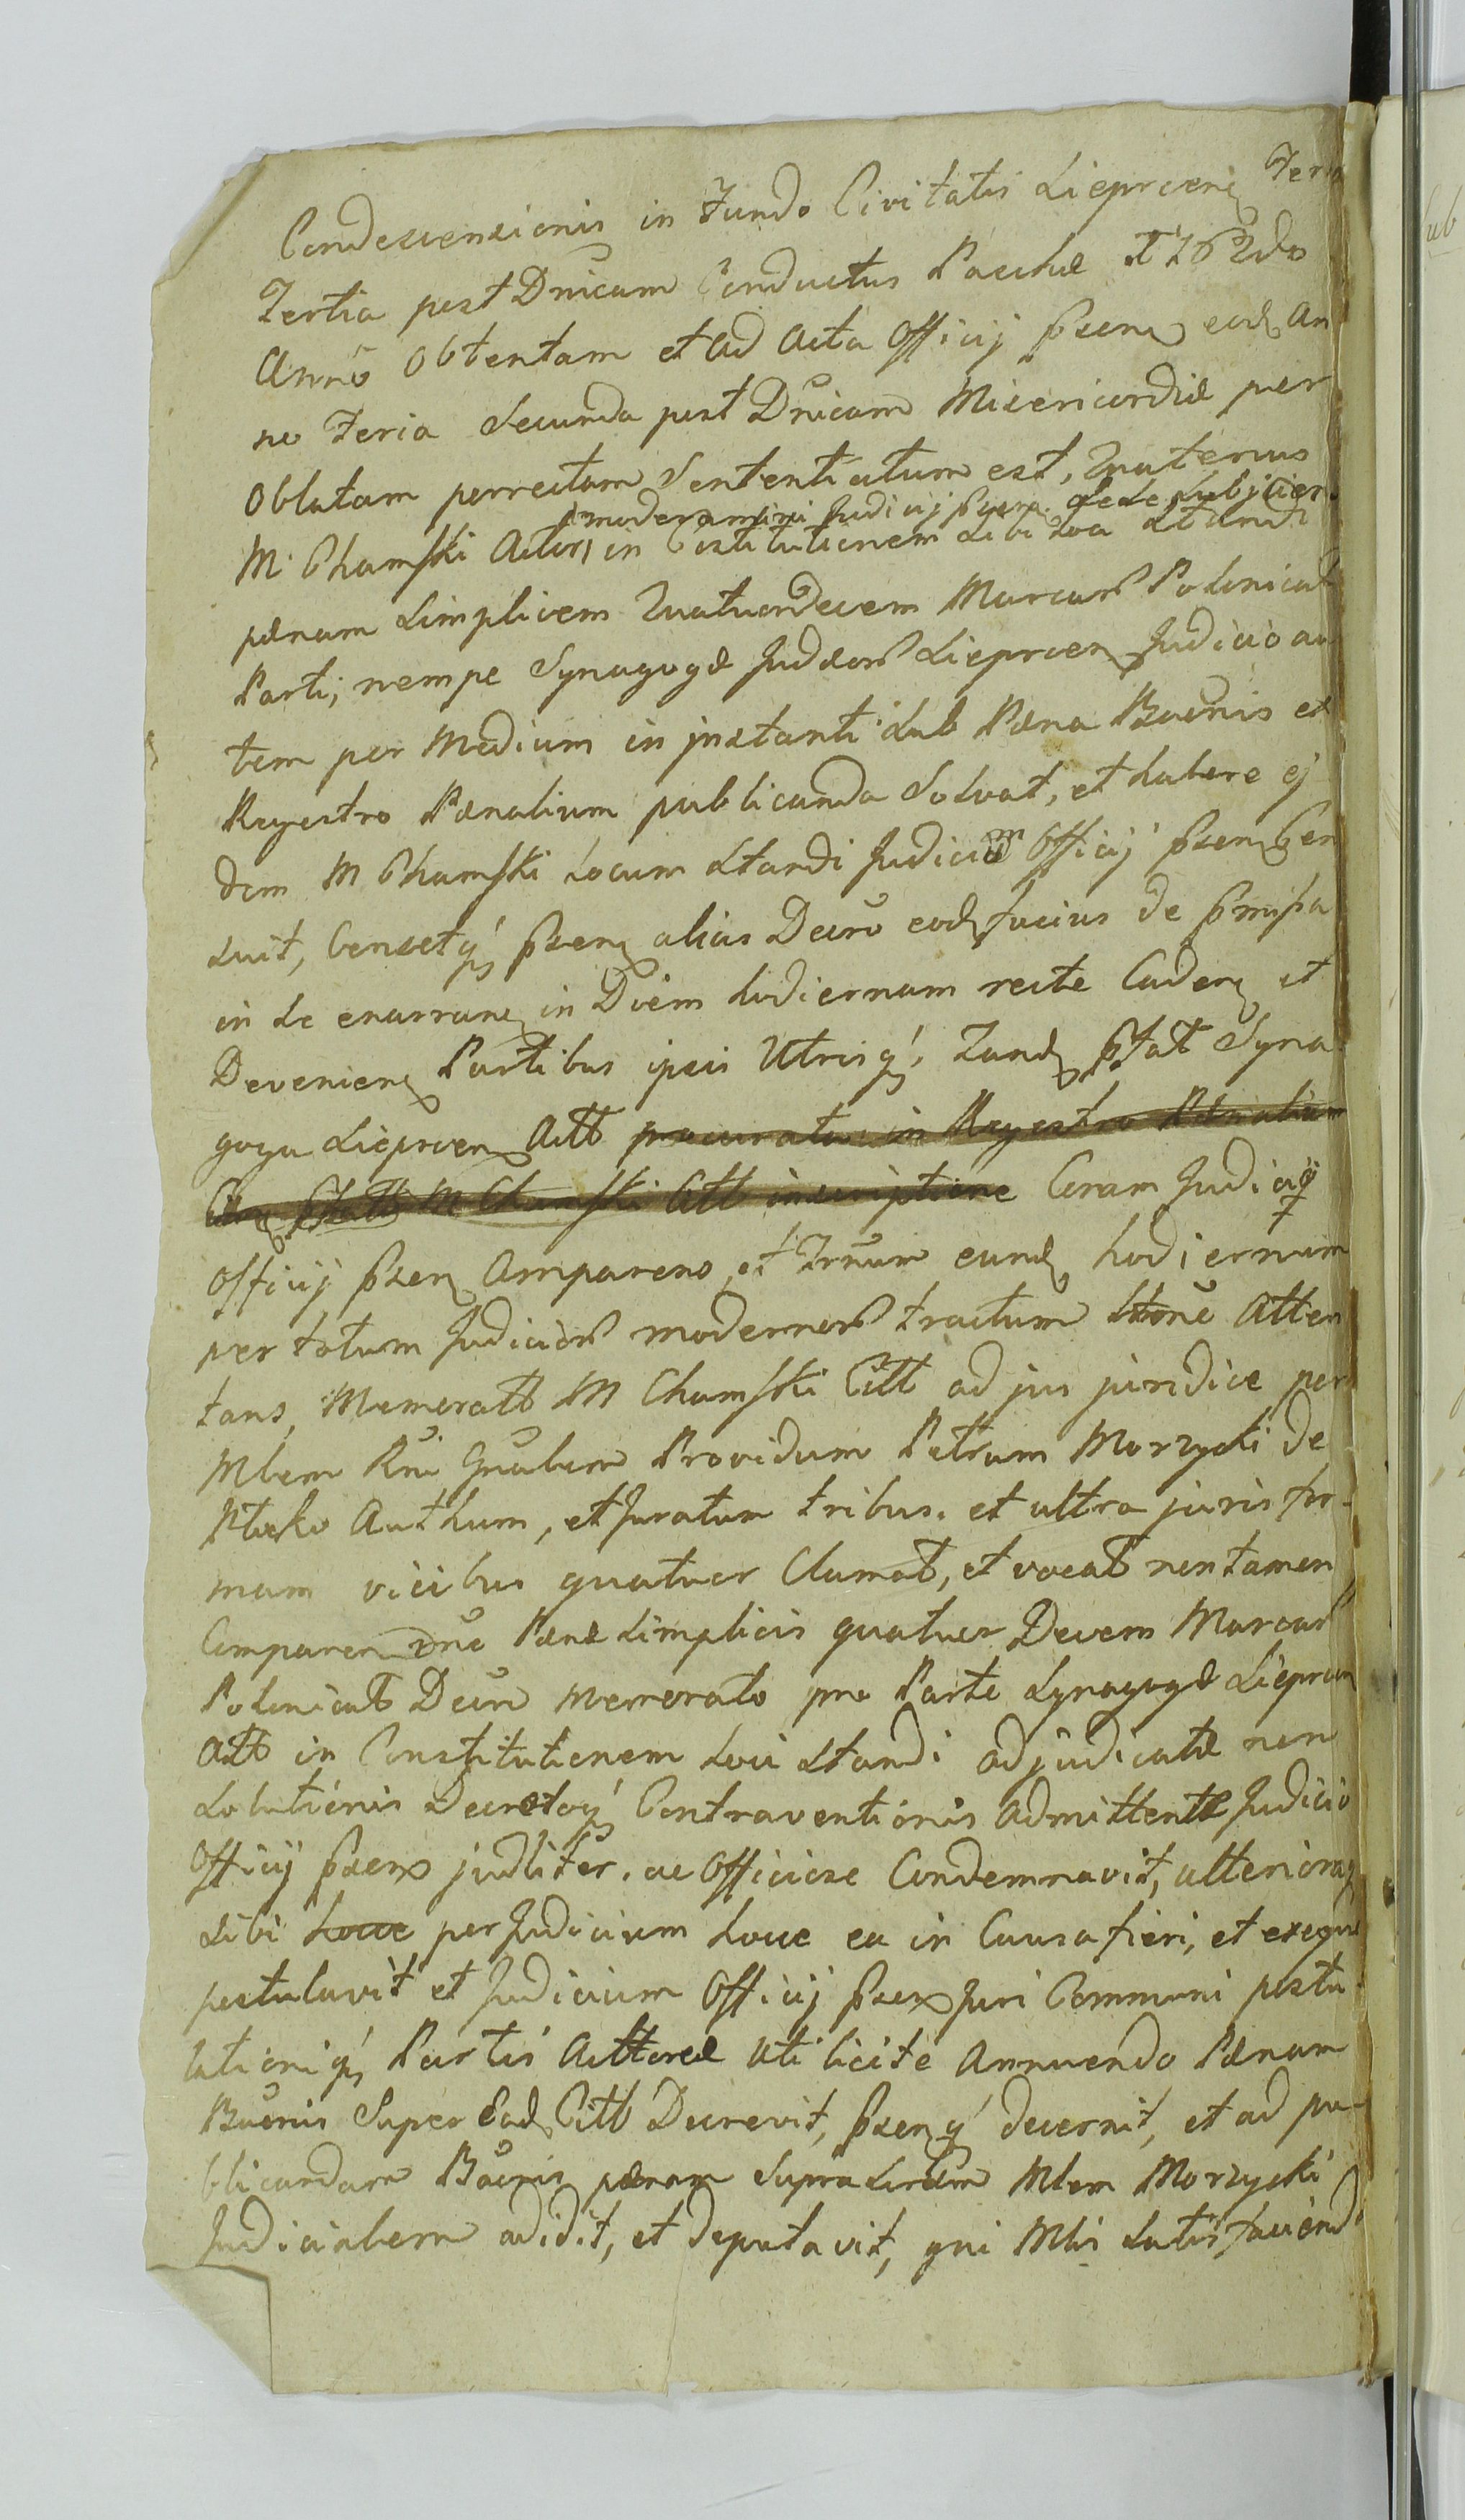 Condescensionis in Fundo Civitatis Sieprcen Feria
Tertia post Dnicam Conductus Paschæ 1762do
Anno Obtentam et ad Acta Officij psen eod An
no Feria Secunda post Dnicam Misericordiæ per
Oblatam porrectam Sententiatum est, Quatenus
moderamini Judicij psen. sese subjicien
M. Chamski Actor, in Costitutionem sibi loci standi
pænam simplicem Quatuordecem Marcar Polonical
Parti, nempe Synagogæ Judæor Sieprcen Judicio au
tem per Medium in jnstanti sub Pæna Bañnis ex
Regestro Pænalium publicanda Solvat, et habere ej
dem M Chamski Locum standi Judicium Officij psen Cen
suit, Censetq psen alias Decro eod facius de pmissa
in se enarran in Diem hodiernam recte Caden et
Devenien Partibus ipsis Utrisq. Tand pfat Syna
goga Sieprcen Actt procurata in Regestro Pænalium
pfatt M Chamski Citt inscriptione Coram Judicijq
Officij psen Comparens, et Trnum eund hodiernum
per totum Judicior modernor tractum Atten
tans, Memoratt M Chamski Citt ad jus juridice per
Mlem Rni Gnalem Providum Petrum Morzycki de
Ptocko Authum, et Juratum tribus. et ultra juris for-
mam vicibus quatuor Clamat, et vocat non tamen
Comparen õne Pænæ simplicis quatuor Decem Marcar
Polonical Decro memorato pro Parte Synagogæ Sieprcen
Actt in Constitutionem loci standi adjudicatæ non
solutionis Decretoq Contraventionis admittente Judicio
Officij psen judliter. ac Officiose Condemnavit, ulterioraq
sibi hocce per Judicium hocce ea in Causa fieri, et exequi
postulavit et Judicium Officij psen Juri Communi postu
lationiq Partis Actoreæ uti licite Annuendo Pænam
Bañnis Super Eod Citt Decrevit, psenq decernit, et ad pu-
blicandam Bañnis pænam Mlem Morzycki
Judicialem adidit, et deputavit, qui Mlis satisfaciend